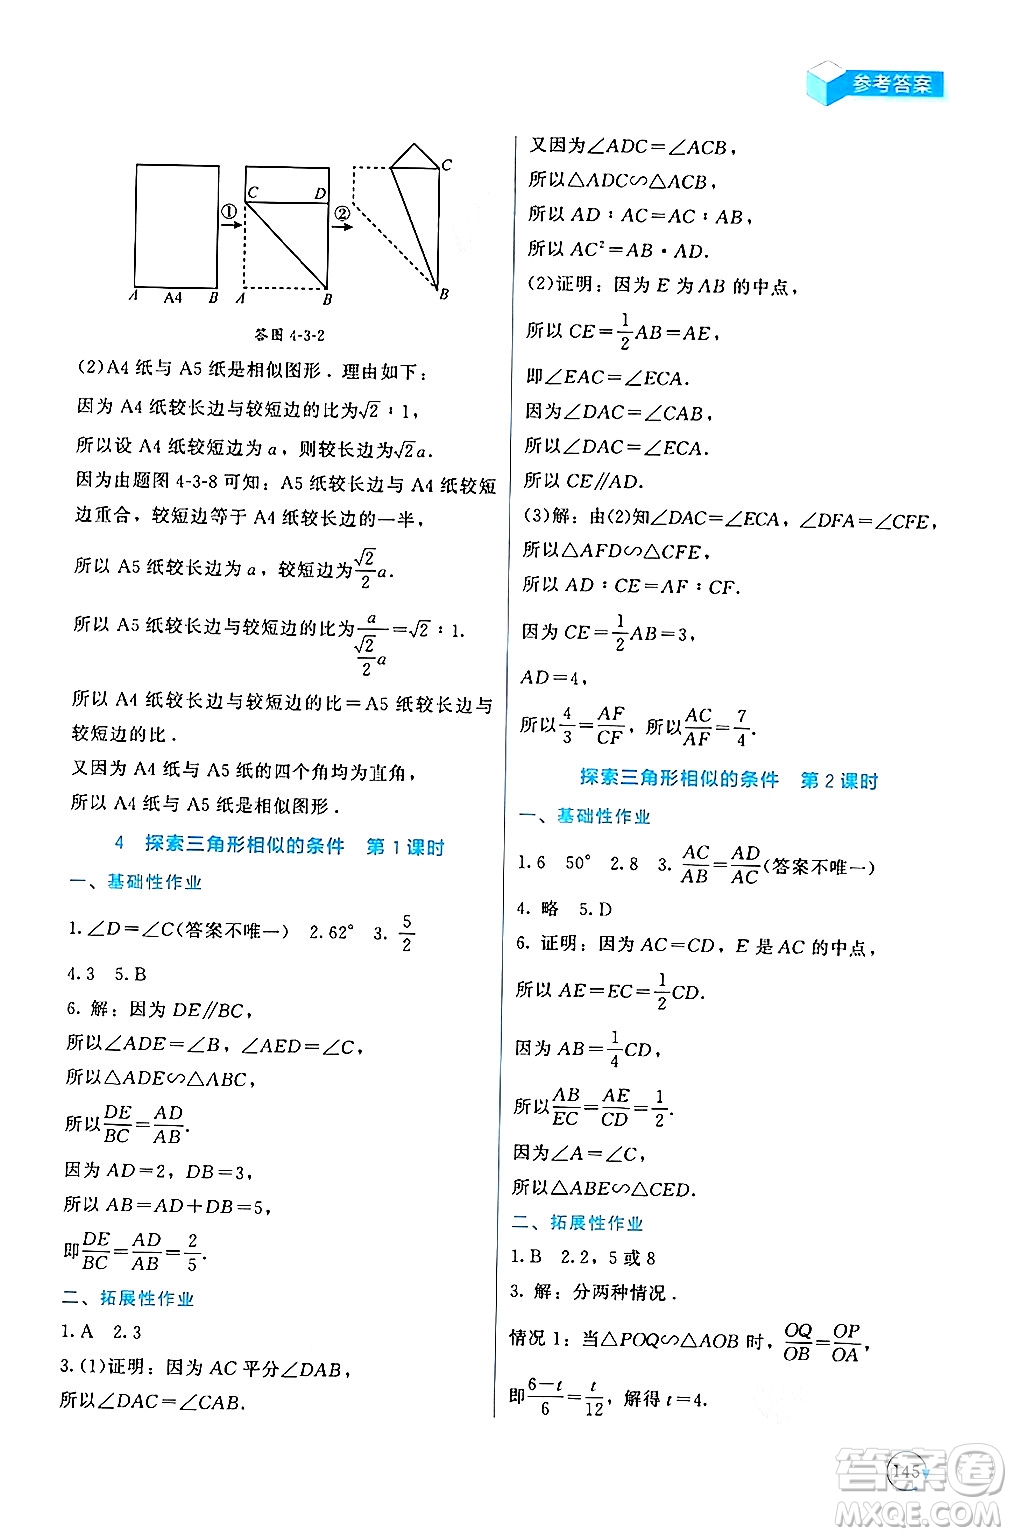 参考答案
C D C
① ②
A A4 B A B B
答图 4-3-2
(2)A4 纸与 A5 纸是相似图形．理由如下：
因为 A4 纸较长边与较短边的比为√2∶1，
所以设 A4 纸较短边为 a，则较长边为√2a．
因为由题图 4-3-8 可知：A5 纸较长边与 A4 纸较短
边重合，较短边等于 A4 纸较长边的一半，
所以 A5 纸较长边为 a，较短边为√2/2 a．
所以 A5 纸较长边与较短边的比为a/(√2/2 a)＝√2∶1．
所以 A4 纸较长边与较短边的比＝A5 纸较长边与
较短边的比．
又因为 A4 纸与 A5 纸的四个角均为直角，
所以 A4 纸与 A5 纸是相似图形．
4 探索三角形相似的条件 第 1 课时
一、基础性作业
1.∠D＝∠C(答案不唯一) 2.62° 3.5/2
4.3 5.B
6. 解：因为 DE∥BC，
所以∠ADE＝∠B，∠AED＝∠C，
所以△ADE∽△ABC，
所以DE/BC＝AD/AB．
因为 AD＝2，DB＝3，
所以 AB＝AD＋DB＝5，
即DE/BC＝AD/AB＝2/5．
二、拓展性作业
1.A 2.3
3.(1)证明：因为 AC 平分∠DAB，
所以∠DAC＝∠CAB．
又因为∠ADC＝∠ACB，
所以△ADC∽△ACB，
所以 AD∶AC＝AC∶AB，
所以 AC²＝AB·AD．
(2)证明：因为 E 为 AB 的中点，
所以 CE＝1/2AB＝AE，
即∠EAC＝∠ECA．
因为∠DAC＝∠CAB，
所以∠DAC＝∠ECA．
所以 CE∥AD．
(3)解：由(2)知∠DAC＝∠ECA，∠DFA＝∠CFE，
所以△AFD∽△CFE，
所以 AD∶CE＝AF∶CF．
因为 CE＝1/2AB＝3，
AD＝4，
所以4/3＝AF/CF，所以AC/AF＝7/4．
探索三角形相似的条件 第 2 课时
一、基础性作业
1.6 50° 2.8 3.AC/AB＝AD/AC(答案不唯一)
4. 略 5.D
6. 证明：因为 AC＝CD，E 是 AC 的中点，
所以 AE＝EC＝1/2CD．
因为 AB＝1/4CD，
所以AB/EC＝AE/CD＝1/2．
因为∠A＝∠C，
所以△ABE∽△CED．
二、拓展性作业
1.B 2.2，5 或 8
3. 解：分两种情况．
情况 1：当△POQ∽△AOB 时，OQ/OB＝OP/OA，
即(6－t)/6＝t/12，解得 t＝4．
145
答案圈
MXQE.COM